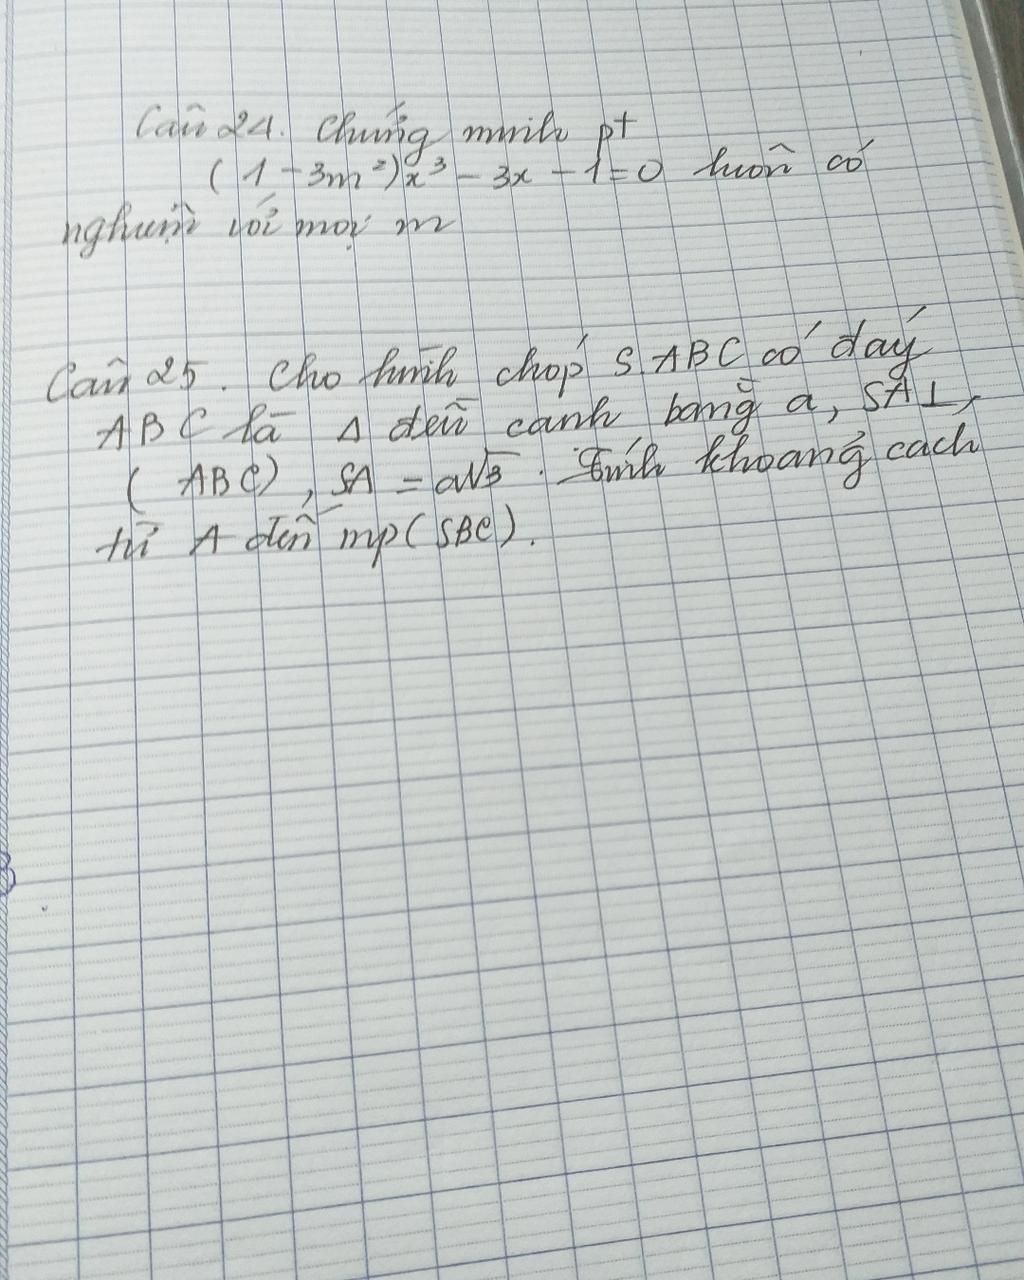 Câu 24. Chứng minh pt
(1 - 3m²)x³ - 3x - 1 = 0 luôn có
nghiệm với mọi m
Câu 25. Cho hình chóp S ABC có đáy
ABC là Δ đều cạnh bằng a, SA⊥
(ABC), SA = a√3. Tính khoảng cách
từ A đến mp(SBC).